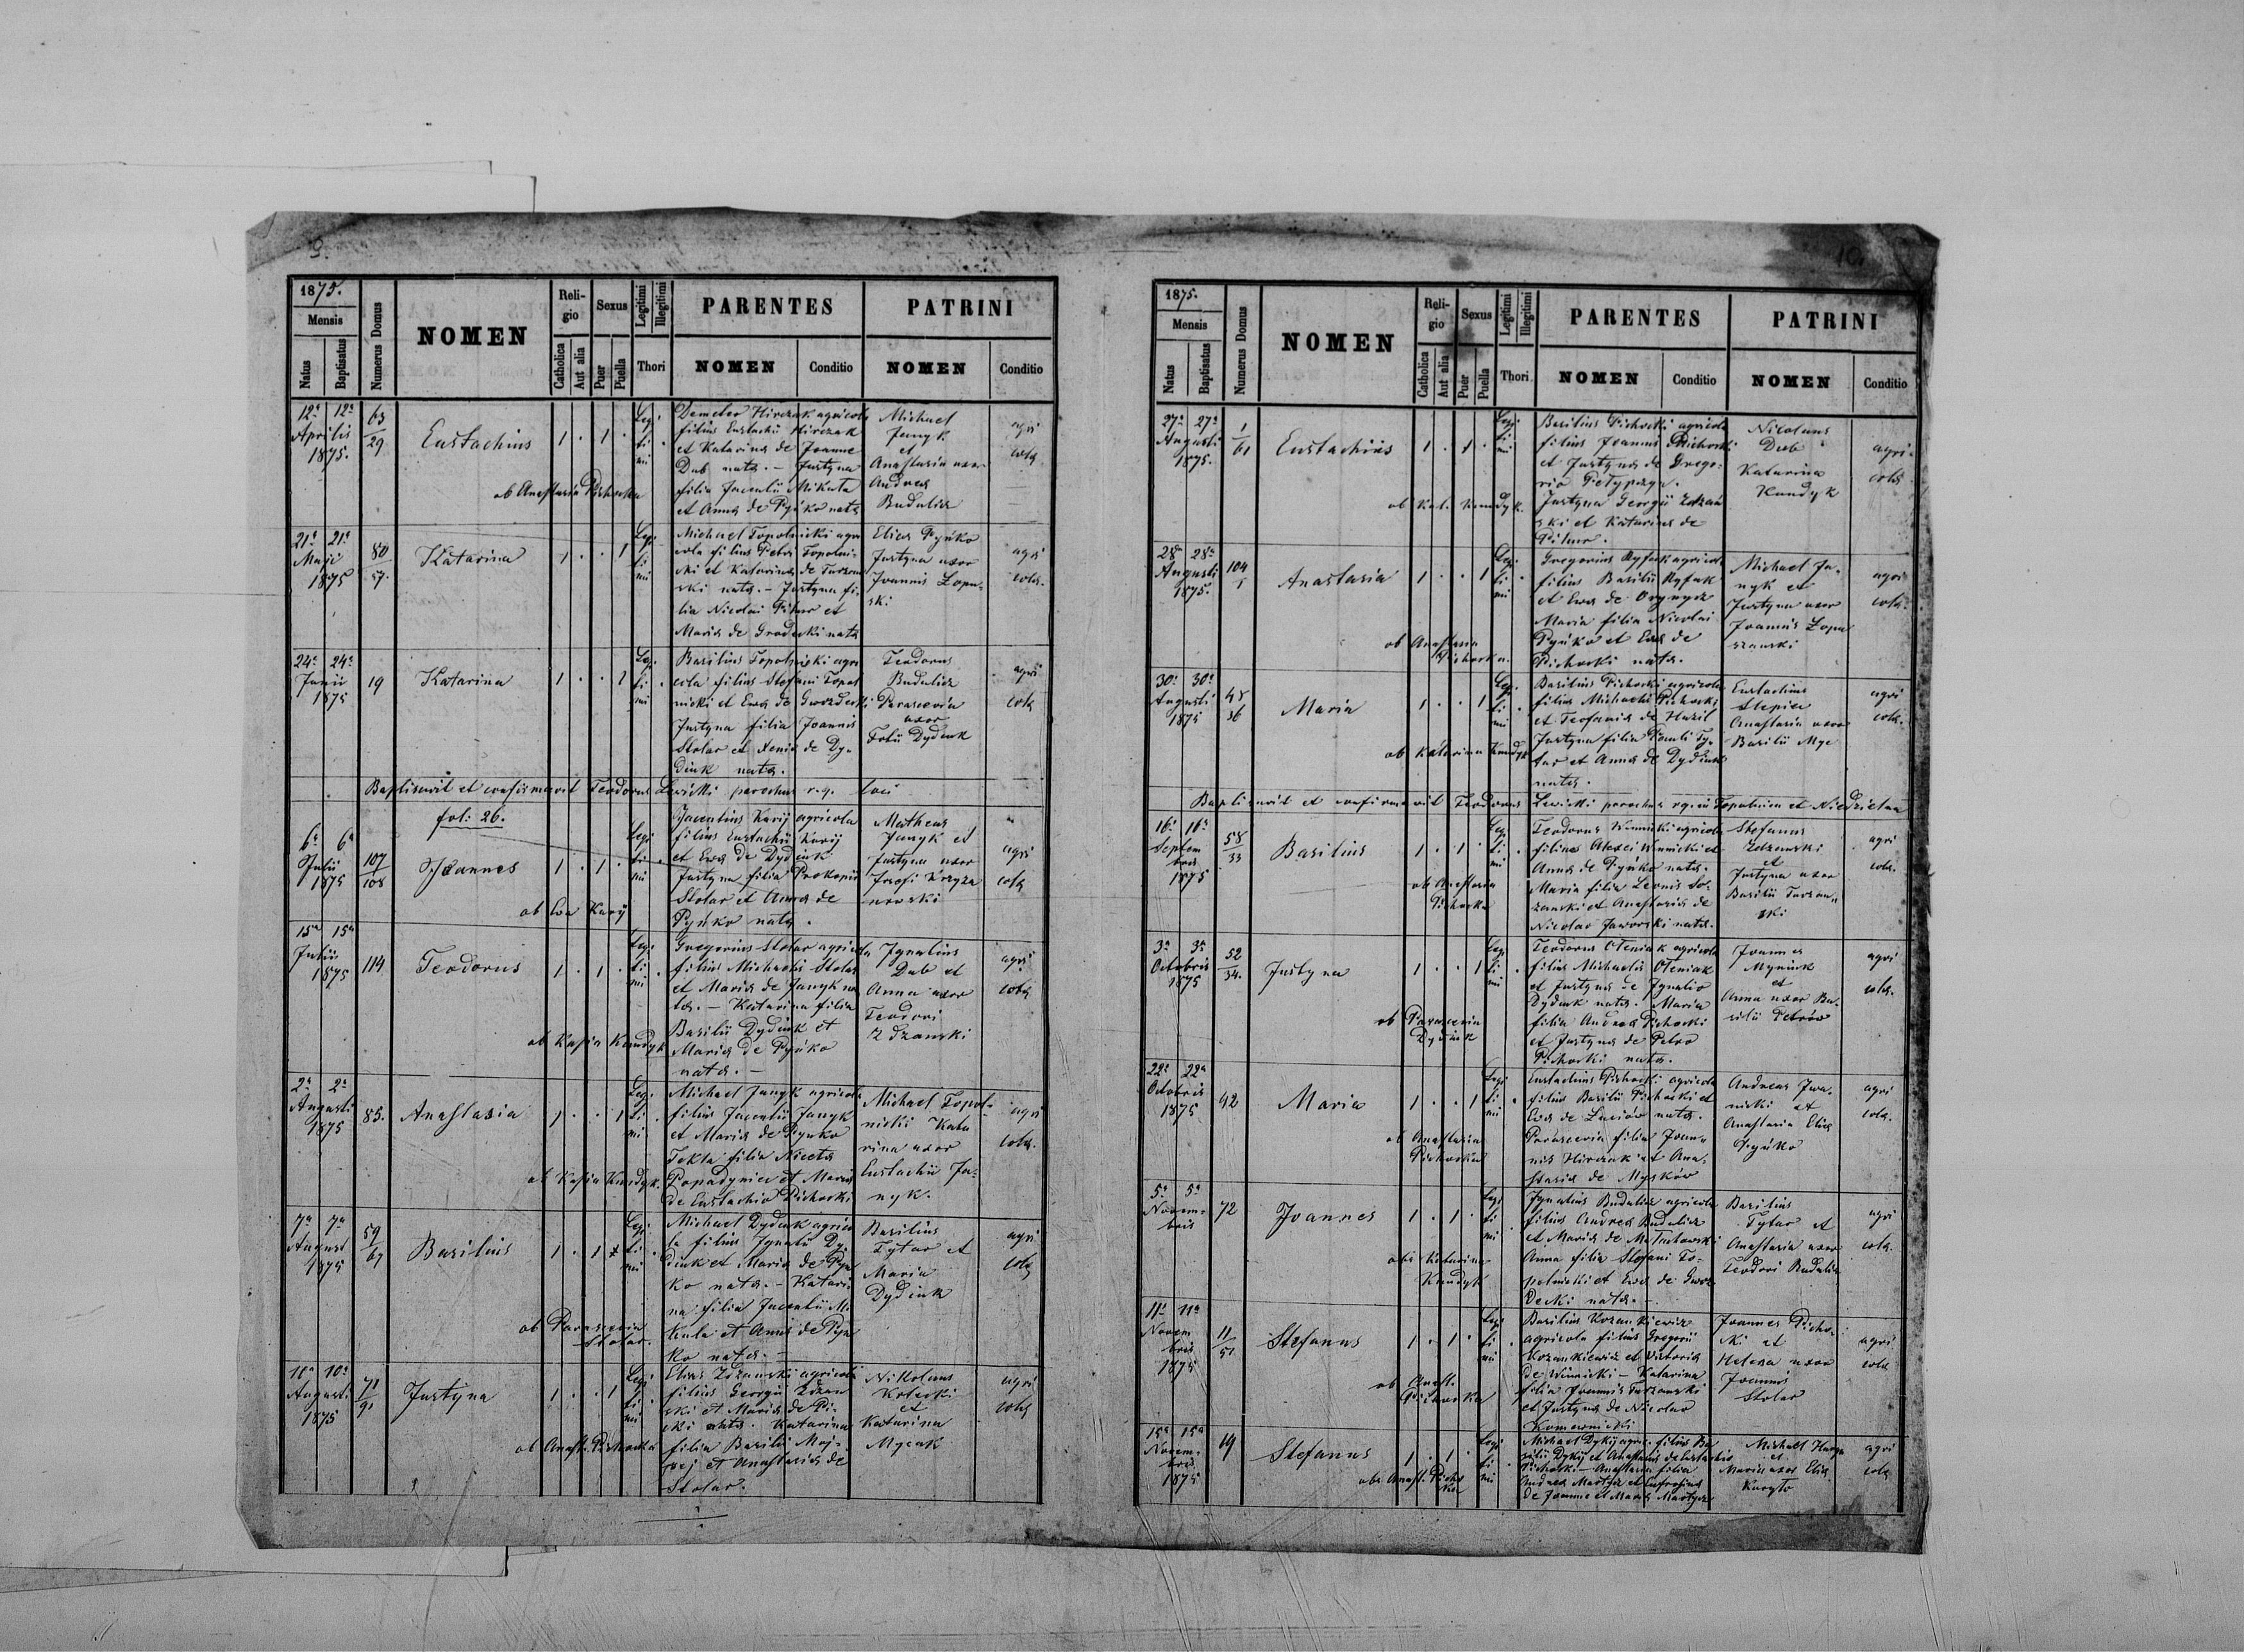 9.
1875.
Mensis
Natus
Baptisatus
Numerus Domus
NOMEN
Religio
Catholica
Aut alia
Sexus
Puer
Puella
Legitimi
Illegitimi
Thori
PARENTES
NOMEN
Conditio
PATRINI
NOMEN
Conditio
12a 12a
Aprilis
1875.
63
29
Eustachius
1 . 1 .
Legi
ti
mi
ob Anastasia Pichocka
Demeter Hirczak agricola
filius Eustachii Hirczak
et Katarina de Joanne
Dub nata. – Justyna
filia Jacentii Mikuta
et Anna de Pyńko nata
Michael
Janyk
et
Anastasia uxor
Andrea
Budulicz
agri
cola
21a 21a
Maji
1875
80
57.
Katarina
1 . . 1
Legi
ti
mi
Michael Topolnicki agri
cola filius Petri Topolni-
cki et Katarina de Turzan
ski nata. – Justyna fi-
lia Nicolai Pilar et
Maria de Grodecki nata
Elias Pyńko
Justyna uxor
Joannis Lopu-
ski
agri
cola.
24a 24a
Junii
1875
19
Katarina
1 . . 1
Legi
ti
mi
Basilius Topolnicki agri
cola filius Stefani Topol
nicki et Eva de Gwozdecki
Justyna filia Joannis
Stolar et Xenia de Dy-
diuk nata.
Teodorus
Budulicz
Parascevia
uxor
Dydiuk
agri
cola
Baptisavit et confirmavit Teodorus Lewicki parochus r.g. loci
fol: 26.
6a 6a
Julii
1875
107
108
Joannes
1 . 1 .
Legi
ti
mi
ob Eva Karij
Jacentius Karij agricola
filius Eustachii Karij
et Eva de Dydiuk
Justyna filia Prokopii
Stolar et Anna de
Pyńko nata.
Matheus
Janyk et
Justyna uxor
Josefi Krzyza
nowski
agri
cola
15a 15a
Julii
1875
114
Teodorus
1 . 1 .
Legi
ti
mi
ob Kasia Kundyk
Gregorius Stolar agricola
filius Michaelis Stolar
et Maria de Janyk na
ta. – Katarina filia
Basilii Dydiuk et
Maria de Pyńko
nata. –
Ignatius
Dub et
Anna uxor
Teodori
Zdzanski
agri
cola
2a 2a
Augusti
1875
85.
Anastasia
1 . . 1
Legi
ti
mi
ob Kasia Kundyk.
Michael Janyk agricola
filius Jacentii Janyk
et Maria de Pynko
Tekla filia Niceta
Popadyniec et Maria
de Eustachio Pichocki
Michael Topol-
nicki Kata
rina uxor
Eustachii Ja-
nyk.
agri
cola.
7a 7a
August
1875
59
67
Basilius
1 . 1
Legi
ti
mi
ob Parascevia
Stolar.
Michael Dydiuk agrico
la filius Ignatii Dy-
diuk et Maria de Pyn
ko nata. – Katari-
na filia Jacentii Mi-
kula et Anna de Pyn
ko nata. –
Basilius
Tytar et
Maria
Dydiuk
agri
cola
10a 10a
Augusti
1875
71
91
Justyna
1 . . 1
Legi
ti
mi
ob Anast. Pichocka
Elias Zdzanski agricola
filius Georgii Zdzan
ski et Maria de Pi-
cki nata. Katarina
filia Basilii
et Anastasia de
Stolar.
Nikolaus
et
Katarina
Mycak
agri
cola
10.
1875.
Mensis
Natus
Baptisatus
Numerus Domus
NOMEN
Religio
Catholica
Aut alia
Sexus
Puer
Puella
Legitimi
Illegitimi
Thori
PARENTES
NOMEN
Conditio
PATRINI
NOMEN
Conditio
27a 27a
Augusti
1875.
1
61
Eustachius
1 . 1 .
Legi
ti
mi
ob Kat. Kundyk.
Basilius Pichocki agricola
filius Joannis Pichocki
et Justyna de Grego-
rio
Justyna Georgii Zdzań
ski et Katarina de
Pilar.
Nicolaus
Dub
Katarina
Kundyk
agri-
cola
28a 28a
Augusti
1875.
104
5
Anastasia
1 . . 1
Legi
ti
mi
ob Anastasia
Pichocka.
Gregorius Ryfak agricola
filius Basilii Ryfak
et Eva de
Maria filia Nicolai
Pyńko et Eva de
Pichocki nata.
Michael Ja-
nyk et
Justyna uxor
Joannis Lopu
szanski
agri
cola.
30a 30a
Augusti
1875
48
36
Maria
1 . . 1
Legi
ti
mi
ob Katarina Kundyk
Basilius Pichocki agricola
filius Michaelis Pichocki
et Teofania de Hazil
Justyna filia Pauli Ty-
tar et Anna de Dydiuk
nata.
Eustachius
Slepicz
Anastasia uxor
Basilii Myc
agri
cola.
Baptisavit et confirmavit Teodorus Lewicki parochus r.g. in Topolnica et Niedzielna
16a 16a
Septem
bris
1875
58
33
Basilius
1 . 1 .
Legi
ti
mi
ob Anastasia
Pichocka
Teodorus Winnicki agricola
filius Alexei Winnicki et
Anna de Pyńko nata.
Maria filia Leonis So-
zanski et Anastasia de
Nicolao Jaworski nata.
Stefanus
Zdzanski
et
Justyna uxor
Basilii Turzan-
ski
agri
cola.
3a 3a
Octobris
1875
52
34.
Justyna
1 . . 1
Legi
ti
mi
ob Parascevia
Dydiuk
Teodorus Oleniak agricola
filius Michaelis Oleniak
et Justyna de Ignatio
Dydiuk nata. Maria
filia Andrea Pichocki
et Justyna de Petro
Pichocki nata.
Joannes
Myniuk
et
Anna uxor Ba-
silii Petrów
agri
cola.
22a 22a
Octobris
1875
42
Maria
1 . . 1
Legi
ti
mi
ob Anastasia
Pichocka
Eustachius Pichocki agricola
filius Basilii Pichocki et
Eva de Luciów nata.
Parascevia filia Joan-
nis Hirczak et Ana-
stasia de Myśków
Andreas Iwa-
nicki et
Anastasia Elia
Pyńko
agri
cola.
5a 5a
Novem-
bris
72
Joannes
1 . 1 .
Legi
ti
mi
obs Katarina
Kundyk
Ignatius Budulicz agricola
filius Andrea Budulicz
et Maria de
Anna filia Stefani To-
polnicki et Eva de Gwoz
decki nata. –
Basilius
Tytar et
Anastasia uxor
Teodori Budulicz
agri
cola.
11a 11a
Novem
bris
1875
11
51
Stefanus
1 . 1 .
Legi
ti
mi
ob Anast.
Pichocka
Basilius Kozankiewicz
agricola filius Gregorii
Kozankiewicz et Victoria
de Winnicki – Katarina
filia Joannis Turzanski
et Justyna de Nicolao
Komarnicki
Joannes Picho-
cki et
Helena uxor
Joannis
Stolar
agri
cola
15a 15a
Novem-
bris
1875
19
Stefanus
1 . 1 .
Legi
ti
mi
obs Anast. Picho
cka
Michael Dykij agric. filius Ba
silii Dykij et Anastasia de Eustachio
Pichocki – Anastasia filia
Andrea Martycz et Eufrosina
de Joanne et Maria Martycz
Michael
et
Maria uxor Elia
agri
cola